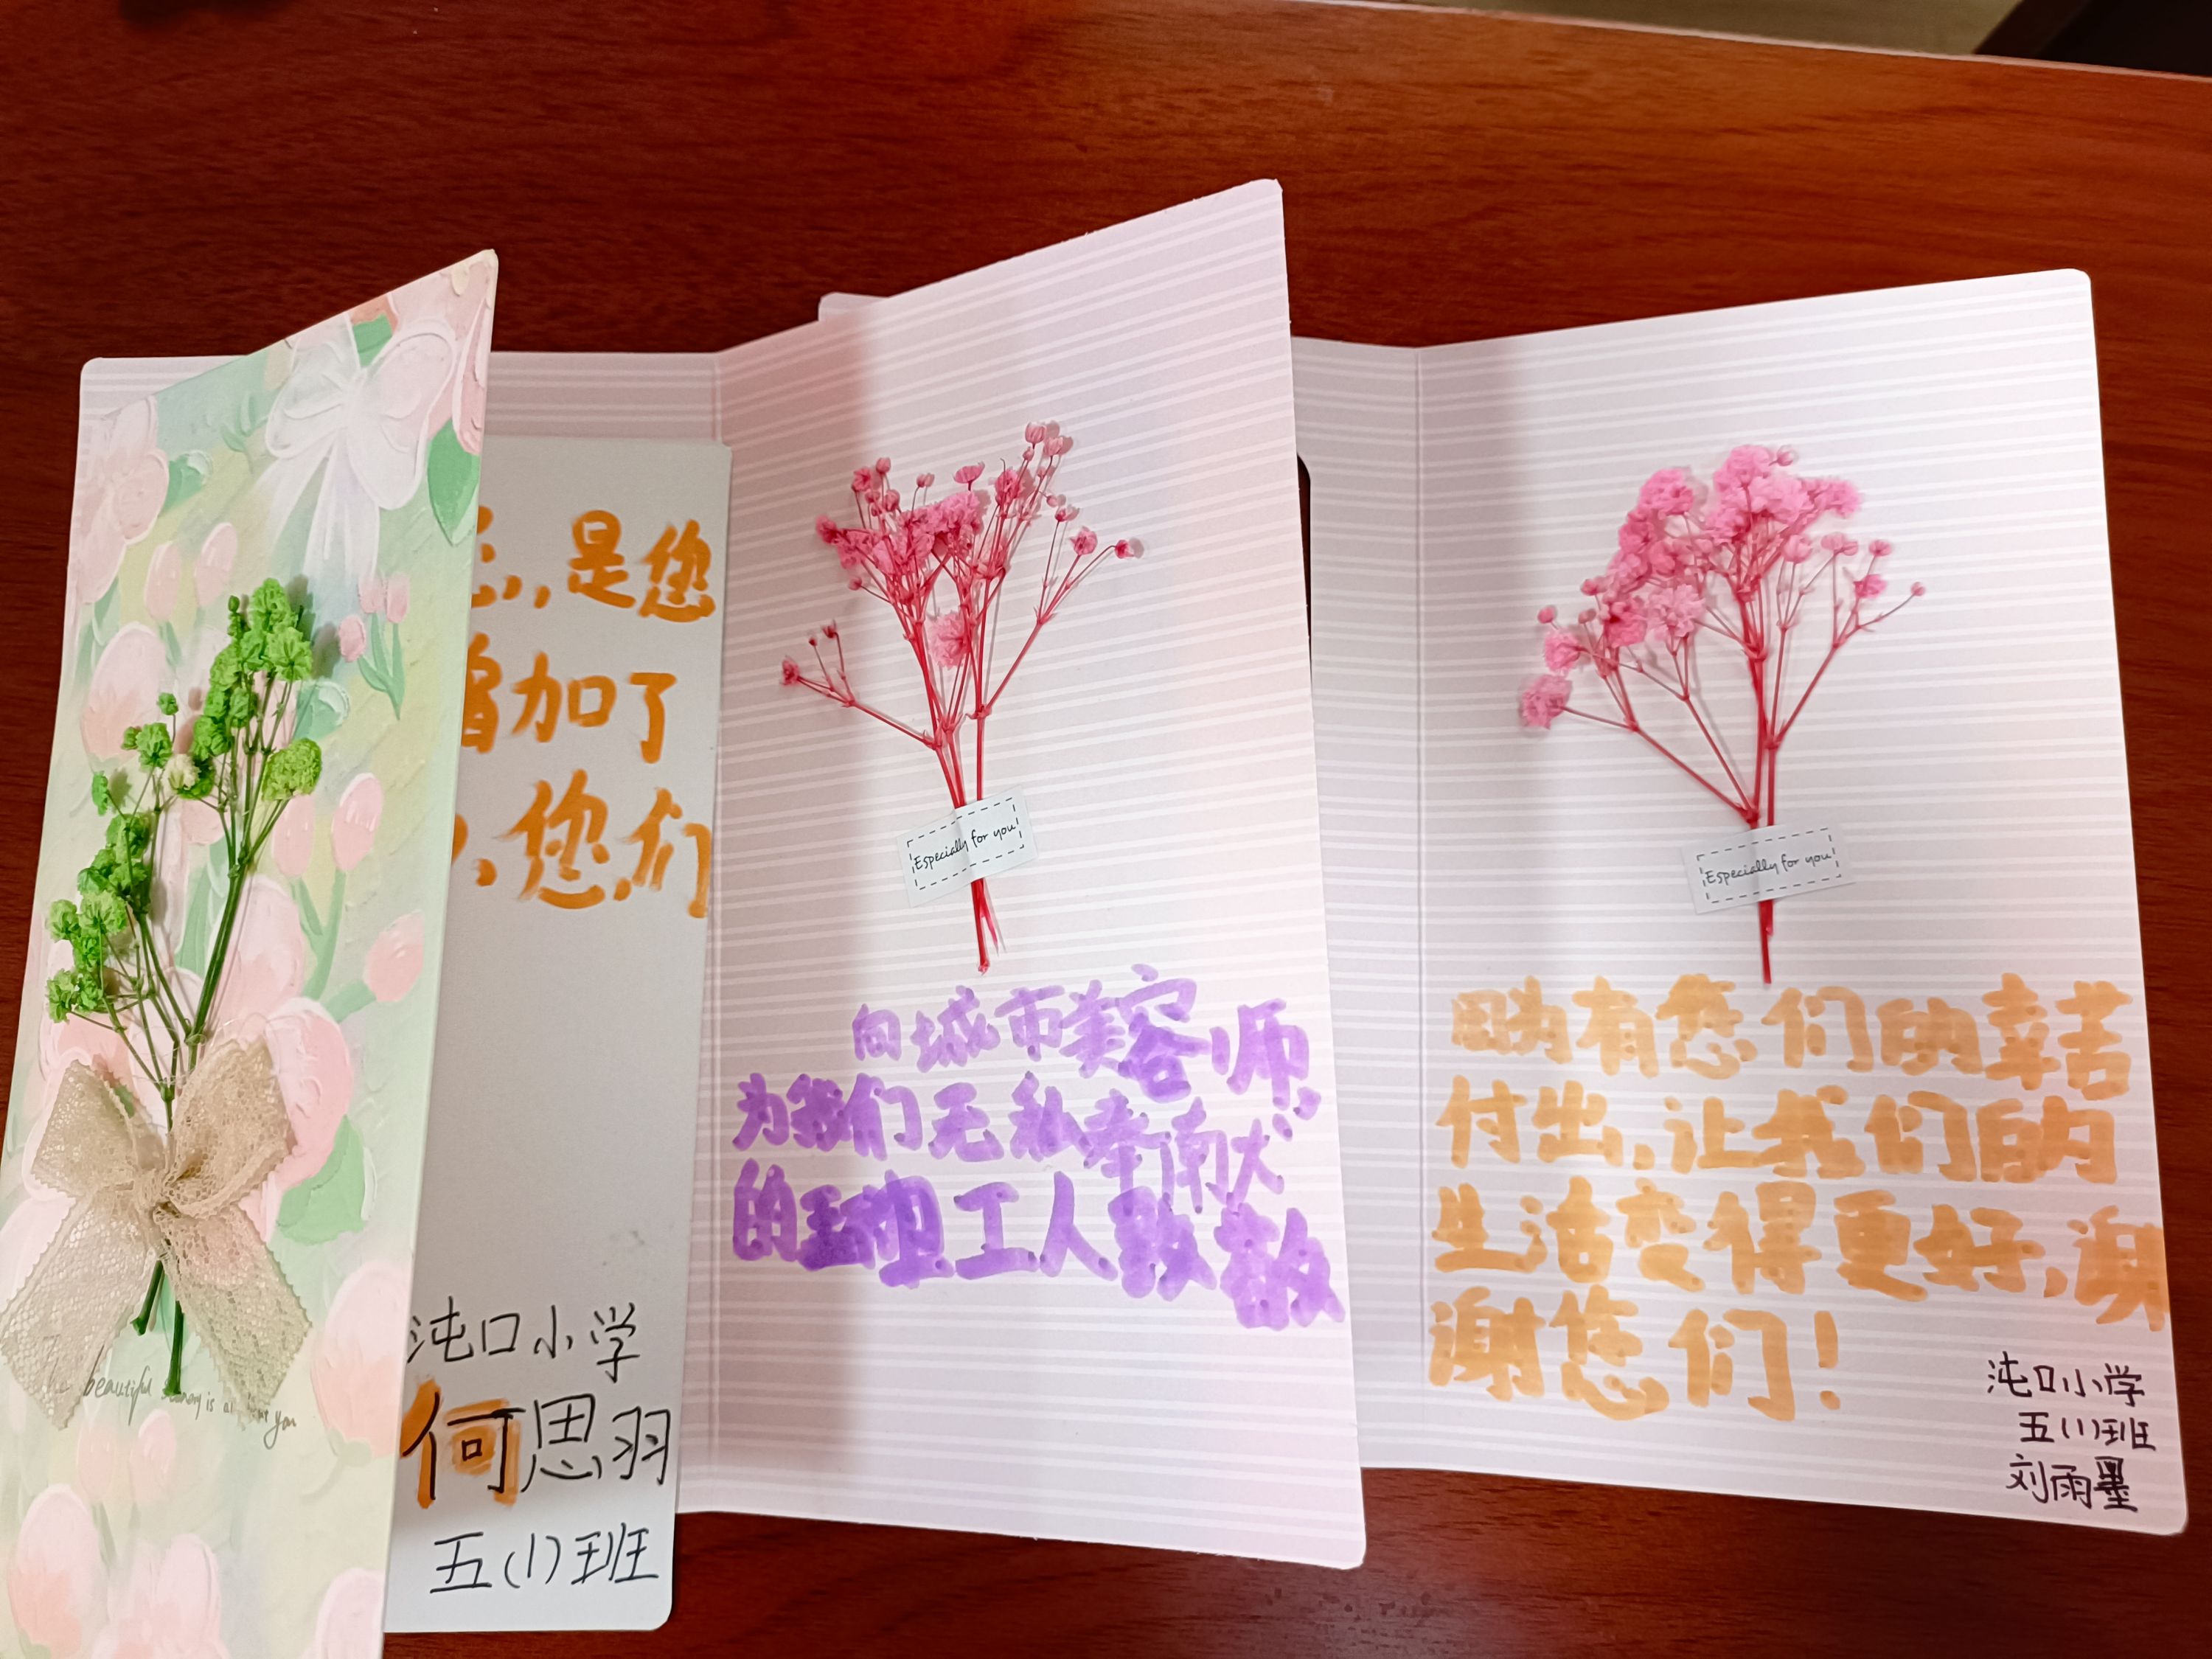 是您
增加了
,您们
沌口小学
何思羽
五(1)班
beautiful
is
you
Especially for you
向城市美容师
为我们无私奉献
的环卫工人致敬
Especially for you
因为有您们的辛苦
付出,让我们的
生活变得更好,谢
谢您们!
沌口小学
五(1)班
刘雨墨